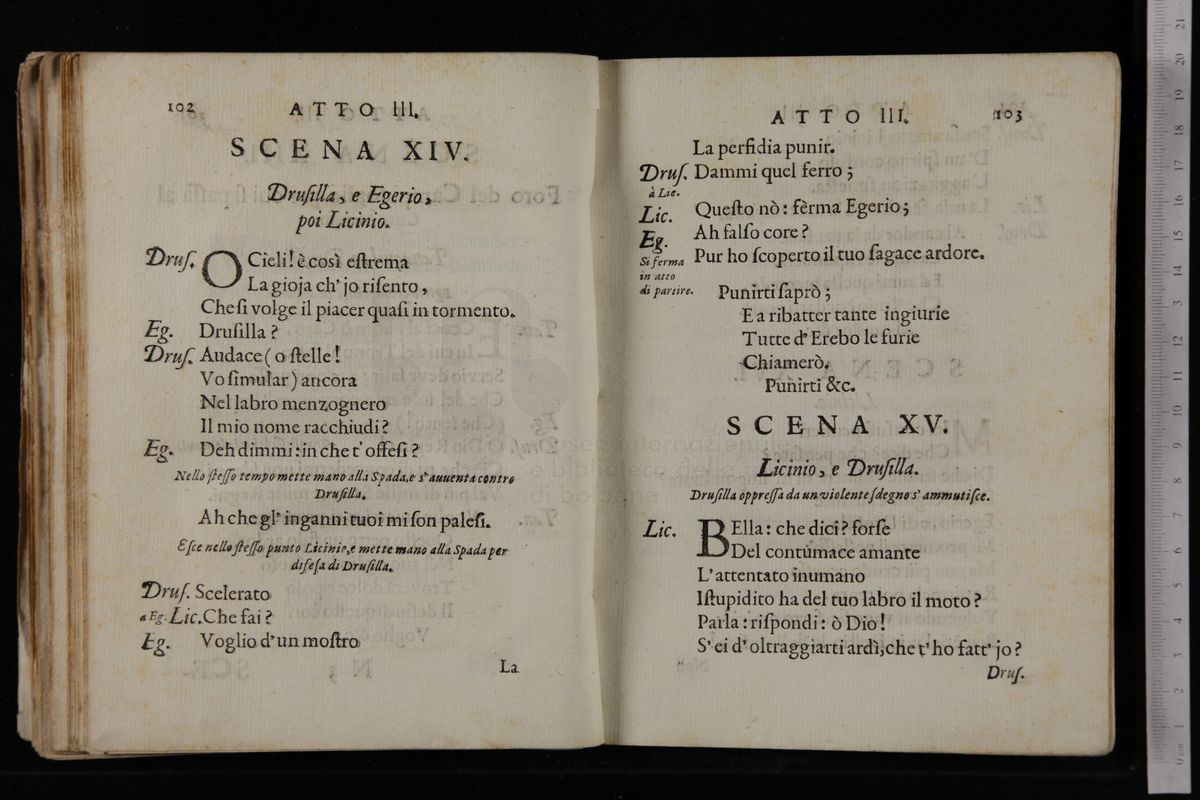 102 ATTO III.
SCENA XIV.
Druſilla, e Egerio,
poi Licinio.
Druſ. O Cieli! è così eſtrema
La gioja ch' jo riſento,
Che ſi volge il piacer quaſi in tormento.
Eg. Druſilla?
Druſ. Audace (o ſtelle!
Vo ſimular) ancora
Nel labro menzognero
Il mio nome racchiudi?
Eg. Deh dimmi: in che t' offeſi?
Nello ſteſſo tempo mette mano alla Spada, e s' auuenta contro
Druſilla.
Ah che gl' inganni tuoi mi ſon paleſi.
Eſce nello ſteſſo punto Licinio, e mette mano alla Spada per
difeſa di Druſilla.
Druſ. Scelerato
a Eg. Lic. Che fai?
Eg. Voglio d' un moſtro
La
ATTO III. 103
La perfidia punir.
Druſ. Dammi quel ferro;
à Lic.
Lic. Queſto nò: fèrma Egerio;
Eg. Ah falſo core?
Si ferma Pur ho ſcoperto il tuo ſagace ardore.
in atto
di partire. Punirti ſaprò;
E a ribatter tante ingiurie
Tutte d' Erebo le furie
Chiamerò.
Punirti &c.
SCENA XV.
Licinio, e Druſilla.
Druſilla oppreſſa da un violente ſdegno s' ammutiſce.
Lic. BElla: che dici? forſe
Del contumace amante
L' attentato inumano
Iſtupidito ha del tuo labro il moto?
Parla: riſpondi: ò Dio!
S' ei d' oltraggiarti ardì, che t' ho fatt' jo?
Druſ.